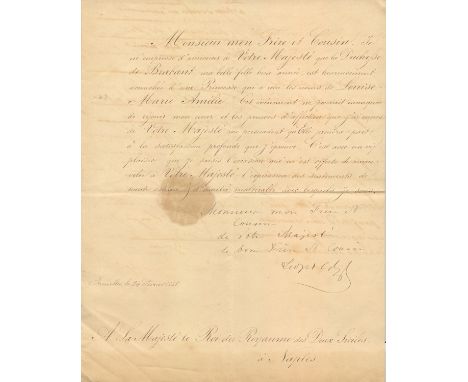 Monsieur mon Frère et Cousin. Je
m'empresse d'annoncer à Votre Majesté que la Duchesse
de Brabant ma belle fille bien aimée, est heureusement
accouchée d'une Princesse qui a reçu les noms de Louise
Marie Amélie. Cet événement ne pouvait manquer
de réjouir mon cœur et les preuves d'affection que j'ai reçues
de Votre Majesté me persuadent qu'Elle prendra part
à la satisfaction profonde que j'éprouve. C'est avec un vif
plaisir que je saisis l'occasion qui m'est offerte de renou
veler à Votre Majesté l'expression des sentiments de
haute estime et d'amitié inaltérable avec lesquels je suis,
Monsieur mon Frère et
Cousin
de votre Majesté
le bon Frère et Cousin
Leopold
Bruxelles le 24 février 1858
A Sa Majesté le Roi du Royaume des Deux Siciles
à Naples